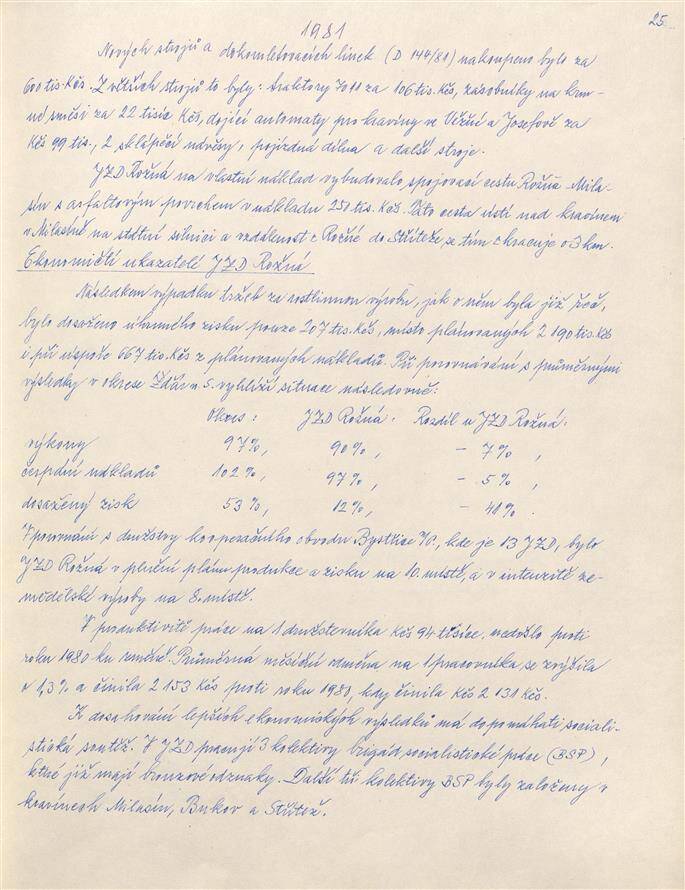 25.
1981
Nových strojů a dokompletovacích linek (D 144/81) nakoupeno bylo za
600 tis. Kčs. Z větších strojů to byly: traktory 7011 za 106 tis. Kčs, zásobníky na krm-
né směsi za 22 tisíc Kčs, dojící automaty pro kravíny ve Věžné a Josefově za
Kčs 99 tis., 2 sklápěcí návěsy, pojízdná dílna a další stroje.
JZD Rožná na vlastní náklad vybudovalo spojovací cestu Rožná - Mila-
sín s asfaltovým povrchem v nákladu 250 tis. Kčs. Tato cesta ústí nad kravínem
v Milasíně na státní silnici a vzdálenost z Rožné do Stříteže se tím zkracuje o 3 km.
Ekonomičtí ukazatelé JZD Rožná
Následkem výpadku tržeb za rostlinnou výrobu, jak o něm byla již řeč,
bylo dosaženo úhrnného zisku pouze 207 tis. Kčs, místo plánovaných 2 190 tis. Kčs
i při úspoře 667 tis. Kčs z plánovaných nákladů. Při porovnávání s průměrnými
výsledky v okrese Žďár n. S. vyhlíží situace následovně:
Okres: JZD Rožná: Rozdíl u JZD Rožná:
výkony 97%, 90%, - 7%,
čerpání nákladů 102%, 97%, - 5%,
dosažený zisk 53%, 12%, - 41%.
V porovnání s družstvy kooperačního obvodu Bystřice n/P., kde je 13 JZD, bylo
JZD Rožná v plnění plánu produkce a zisku na 10. místě, a v intenzitě ze-
mědělské výroby na 8. místě.
V produktivitě práce na 1 družstevníka Kčs 94 tisíce, nedošlo proti
roku 1980 ku změně. Průměrná měsíční odměna na 1 pracovníka se zvýšila
o 1,3% a činila 2 153 Kčs proti roku 1980, kdy činila Kčs 2 131 Kčs.
K dosahování lepších ekonomických výsledků má dopomáhati sociali-
stická soutěž. V JZD pracují 3 kolektivy brigád socialistické práce (BSP),
které již mají bronzové odznaky. Další tři kolektivy BSP byly založeny v
kravínech Milasín, Bukov a Střítež.